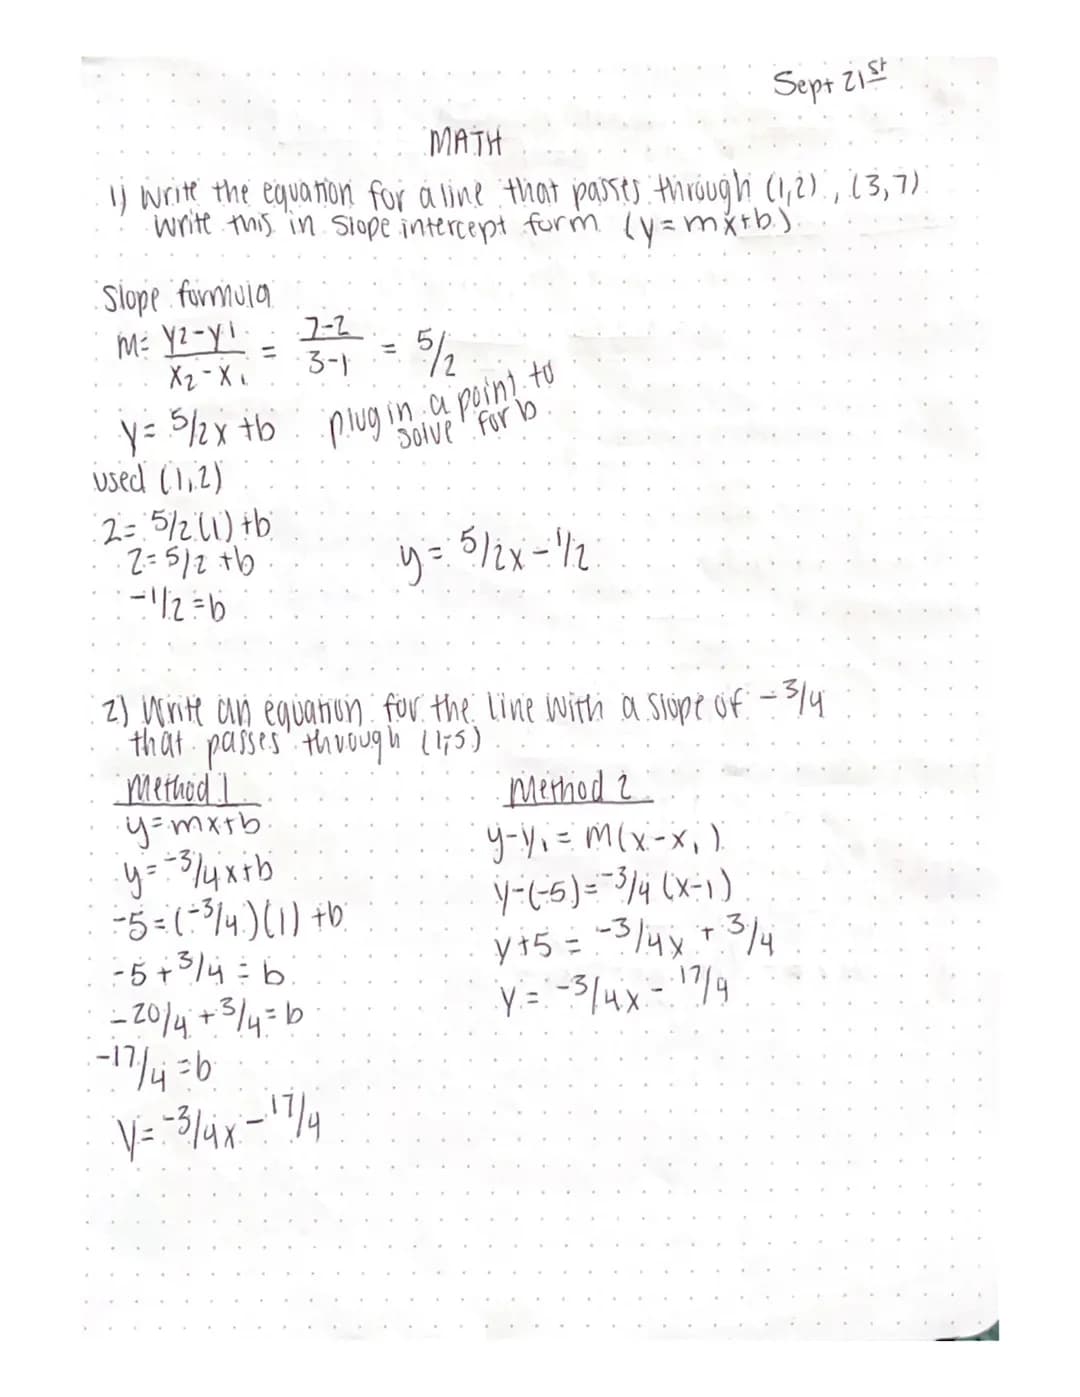 Sept 21st
MATH
1) Write the equation for a line that passes through (1,2), (3,7)
Write this in slope intercept form (y=mx+b)
Slope formula
m= y2-y1 / x2-x1 = 7-2 / 3-1 = 5/2
y= 5/2x +b plug in a point to
solve for b
used (1,2)
2= 5/2(1)+b
2=5/2 +b
-1/2=b
y= 5/2x -1/2
2) Write an equation for the line with a slope of -3/4
that passes through (1,-5)
Method 1
y=mx+b
y=-3/4x+b
-5=(-3/4)(1) +b
-5+3/4 = b
-20/4 +3/4=b
-17/4=b
y=-3/4x -17/4
Method 2
y-y1= m(x-x1)
y-(-5)=-3/4 (x-1)
y+5 = -3/4x + 3/4
y= -3/4x - 17/4